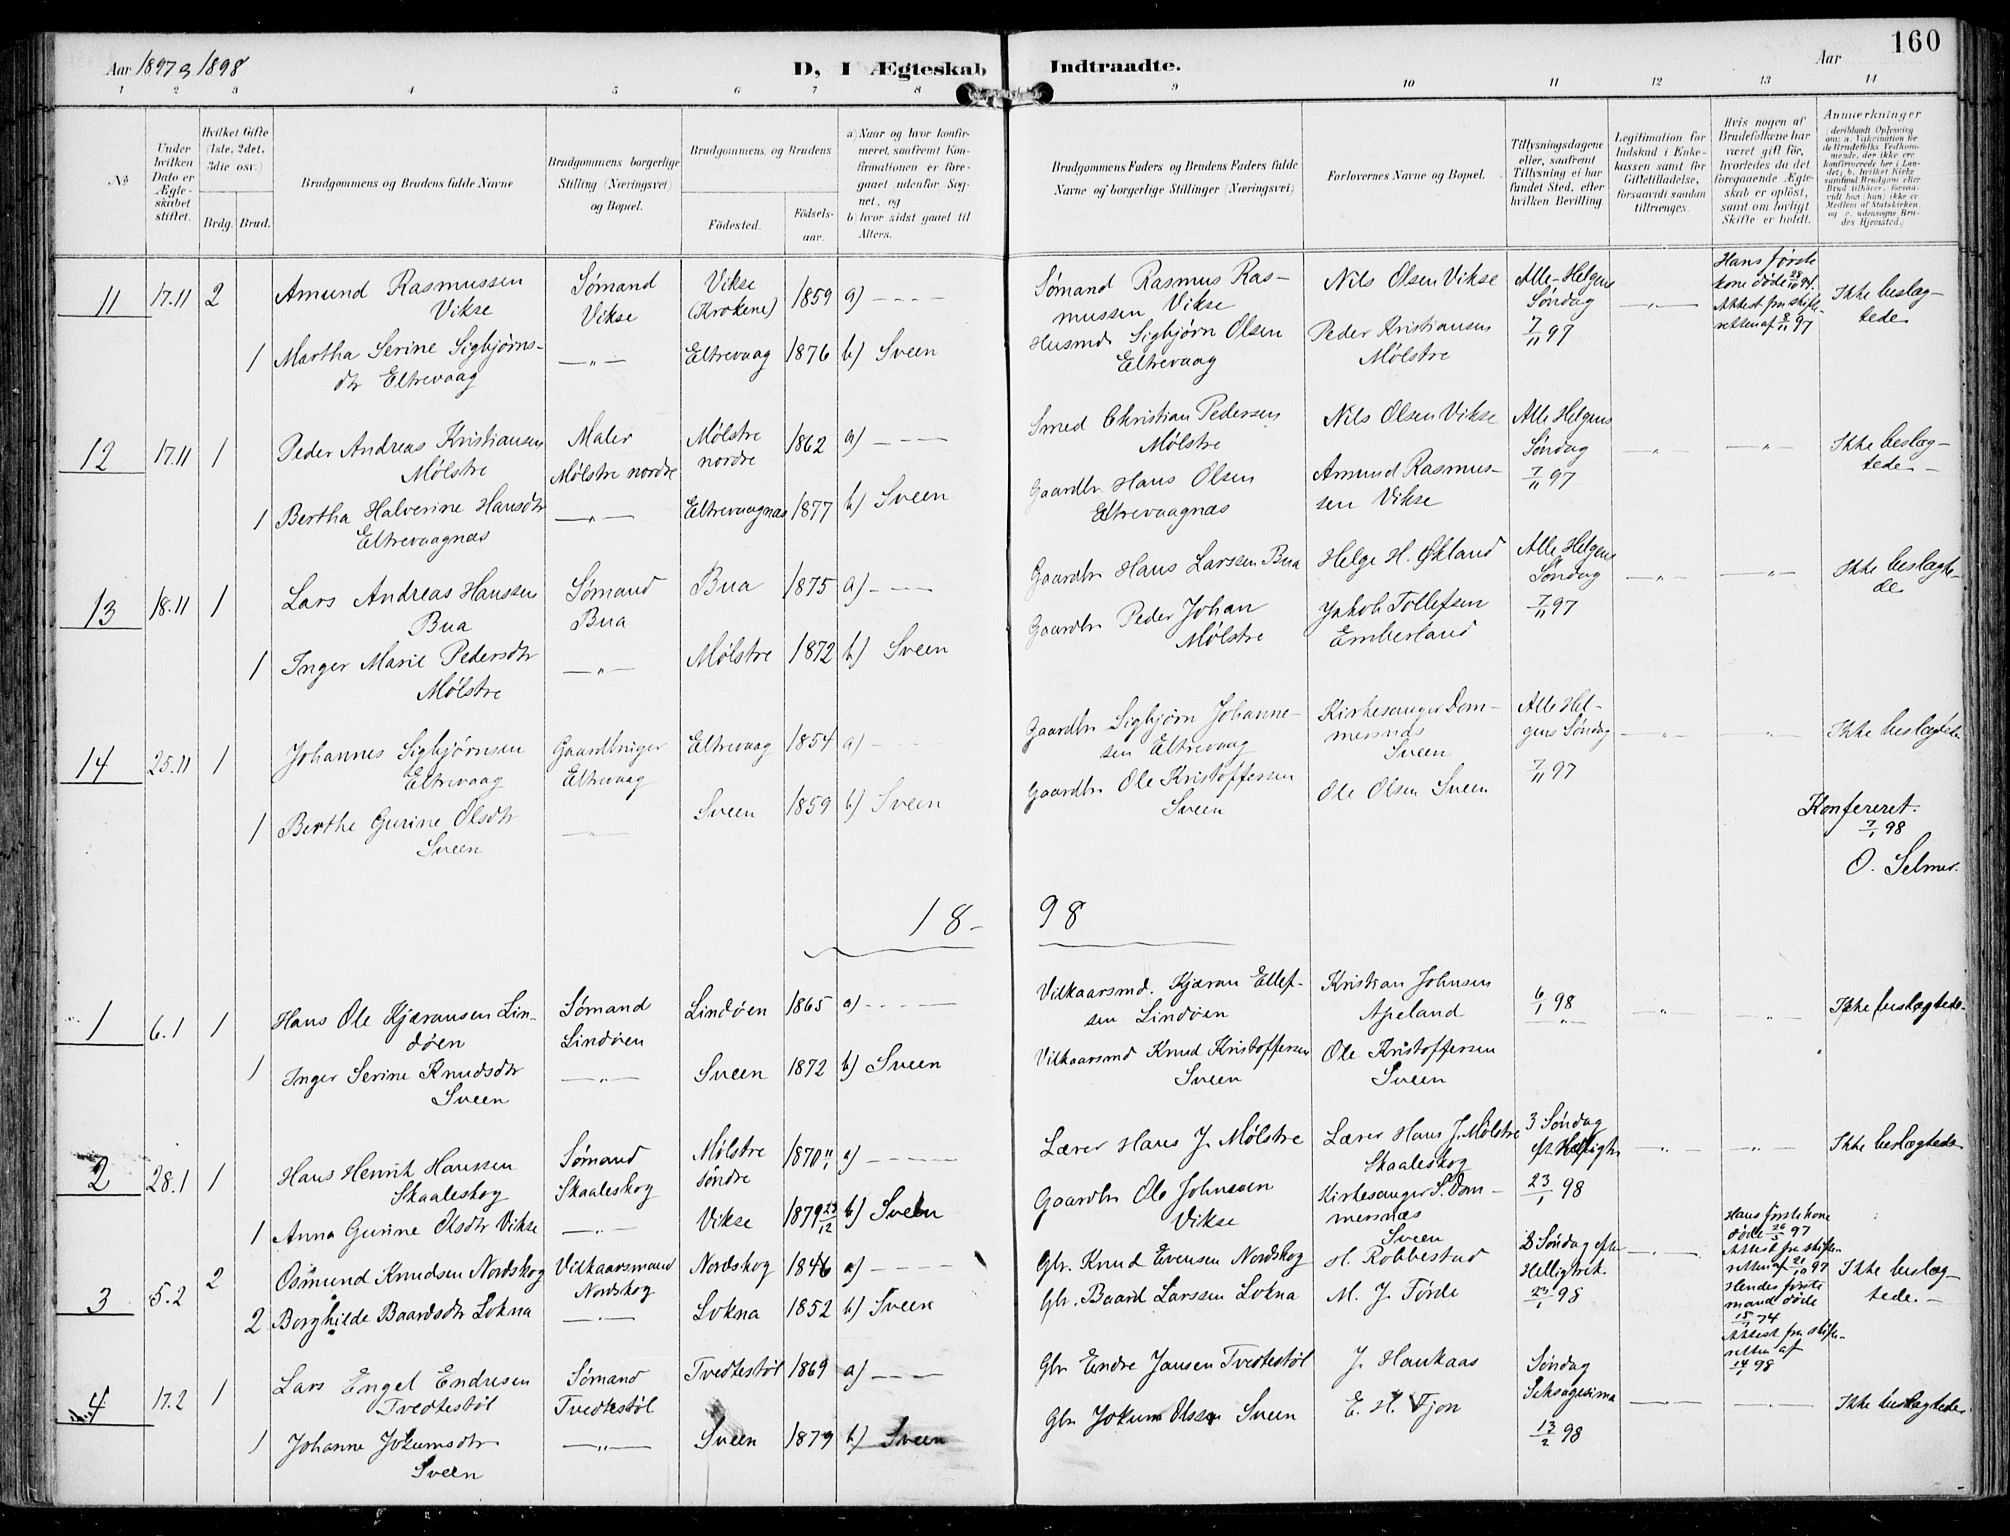 Aar 1897 og 1898
D, I Ægteskab Indtraadte.
Aar
160
1 2 3 4 5 6 7 8 9 10 11 12 13 14
No
Under hvilken Dato er Ægteskabet stiftet.
Hvilket Gifte (1ste, 2det, 3die osv.)
Brdg. Brud.
Brudgommens og Brudens fulde Navne
Brudgommens borgerlige Stilling (Næringsvei) og Bopæl.
Brudgommens og Brudens
Fødested.
Fødselsaar.
a) Naar og hvor konfirmeret, saafremt Konfirmationen er foregaaet udenfor Sognet, og
b) hvor sidst gaaet til Alters.
Brudgommens Faders og Brudens Faders fulde Navne og borgerlige Stillinger (Næringsvei)
Forlovernes Navne og Bopæl.
Tillysningsdagene eller, saafremt Tillysning ei har fundet Sted, efter hvilken Bevilling.
Legitimation for Indskud i Enkekassen samt for Giftetilladelse, forsaavidt saadan tiltrænges.
Hvis nogen af Brudefolkene har været gift før, hvorledes da det foregaaende Ægteskab er opløst, samt om lovligt Skifte er holdt.
Anmerkninger (deriblandt Oplysning om: a. Vaccination for de Brudefolks Vedkommende, der ikke ere konfirmerede her i Landet; b. hvilket Kirkesamfund Brudgom eller Brud tilhører, forsaavidt han (hun) ikke er Medlem af Statskirken, og c. udensogns Brudes Hjemsted.)
11 17.11 2 Amund Rasmussen Vikse
Sømand Vikse
Vikse (Krokene) 1859 a) - - - -
Sømand Rasmus Rasmussen Vikse
Nils Olsen Vikse
Alle-Helgens Søndag 7/11 97
-„-
Hans første kone døde 28/10 94. Attest fra skifteretten af 8/11 97
Ikke beslægtede
1 Martha Serine Sigbjørnsdtr Eltrevaag
-„-
Eltrevaag 1876 b) Sveen
Husmd Sigbjørn Olsen Eltrevaag
Peder Kristiansen Mølstre
12 17.11 1 Peder Andreas Kristiansen Mølstre
Maler Mølstre nordre
Mølstre nordre 1862 a) - - - -
Smed Christian Pedersen Mølstre
Nils Olsen Vikse
Alle Helgens Søndag 7/11 97
-„- -„-
Ikke beslægtede
1 Bertha Halverine Hansdtr Eltrevaagnæs
-„-
Eltrevaagnæs 1877 b) Sveen
Gaardbr Hans Olsen Eltrevaagnæs
Amund Rasmussen Vikse
13 18.11 1 Lars Andreas Hanssen Bua
Sømand Bua
Bua 1875 a) - - -
Gaardbr Hans Larssen Bua
Helge H. Økland
Alle Helgens Søndag 7/11 97
-„- -„-
Ikke beslægtede
1 Inger Marie Pedersdtr Mølstre
-„-
Mølstre 1872 b) Sveen
Gaardbr Peder Johan Mølstre
Jakob Tollefsen Emberland
14 25.11 1 Johannes Sigbjørnsen Eltrevaag
Gaardbruger Eltrevaag
Eltrevaag 1854 a) - - -
Gaardbr Sigbjørn Johannesen Eltrevaag
Kirkesanger Dommersnæs Sveen
Alle Helgens Søndag 7/11 97
-„- -„-
Ikke beslægtede
1 Berthe Gurine Olsdtr Sveen
-„-
Sveen 1859 b) Sveen
Gaardbr Ole Kristoffersen Sveen
Ole Olsen Sveen
Konfereret.
7/1 98
O. Selmer.
18-98
1 6.1 1 Hans Ole Kjæransen Lindøen
Sømand Lindøen
Lindøen 1865 a) - - - -
Vilkaarsmd. Kjæran Ellefsen Lindøen
Kristian Johnsen Apeland
6/1 98
-„- -„-
Ikke beslægtede.
1 Inger Serine Knudsdtr Sveen
-„-
Sveen 1872 b) Sveen
Vilkaarsmd Knud Kristoffersen Sveen
Ole Kristoffersen Sveen
2 28.1 1 Hans Henrik Hanssen Skaaleskog
Sømand Skaaleskog
Mølstre søndre 1870 a) - - - -
Lærer Hans J. Mølstre
Lærer Hans J. Mølstre Skaaleskog
3 Søndag 23/1 98
-„- -„-
Ikke beslægtede
1 Anna Gurine Olsdtr Vikse
-„-
Vikse 1879 23/12 b) Sveen
Gaardbr Ole Johnsen Vikse
Kirkesanger S. Dommersnæs Sveen
3 5.2 2 Osmund Knudsen Nordskog
Vilkaarsmand Nordskog
Nordskog 1846 a) - - - -
Gbr. Knud Evensen Nordskog
H. Robbestad
3 Søndag efter Helligtrek. 23/1 98
-„-
Hans første kone døde 26/5 97 Attest fra skifteretten af 21/10 97
Hendes første mand døde 15/1 74 Attest fra skifteretten af 14/1 98
Ikke beslægtede.
2 Borghilde Baardsdtr Lokna
-„-
Lokna 1852 b) Sveen
Gbr. Baard Larssen Lokna
M. J. Førde
4 17.2 1 Lars Engel Endresen Tvedtestøl
Sømand Tvedtestøl
Tvedtestøl 1869 a) - - - -
Gbr Endre Jansen Tvedtestøl
J. Haukaas
Søndag Seksagesima 13/2 98
-„- -„-
Ikke beslægtede.
1 Johanne Jokumsdtr Sveen
-„-
Sveen 1879 b) Sveen
Gbr Jokum Olssen Sveen
E. H. Tjon